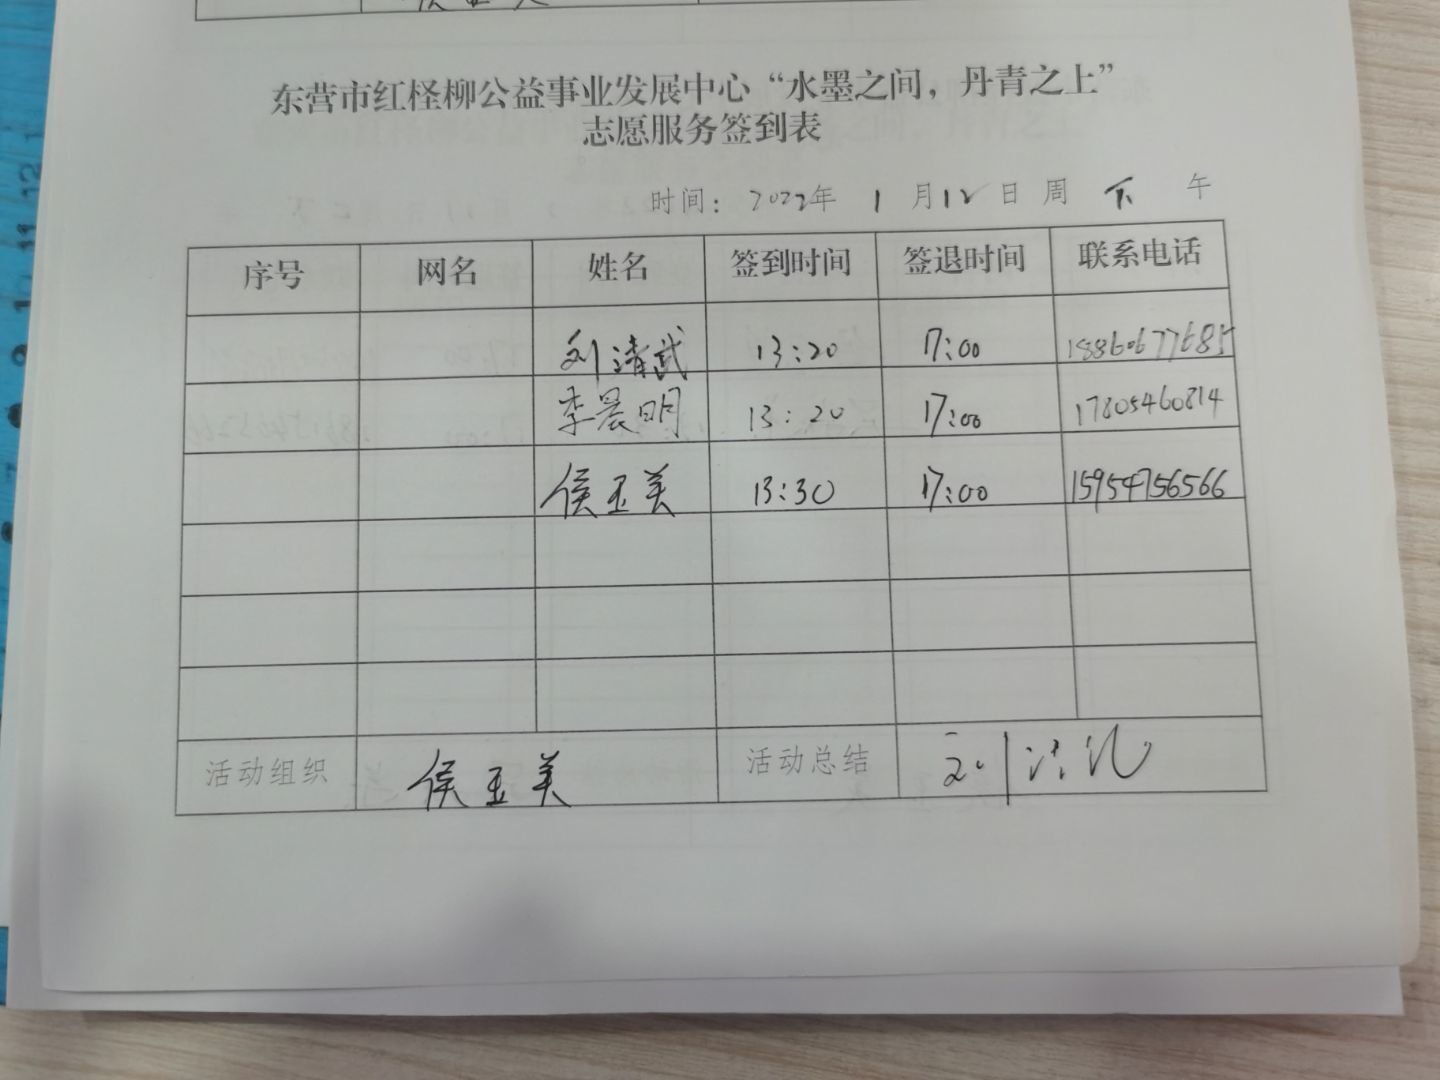 东营市红柽柳公益事业发展中心“水墨之间，丹青之上”
志愿服务签到表
时间： 2022年 1 月12 日 周 下 午
序号 网名 姓名 签到时间 签退时间 联系电话
刘清武 13:20 17:00 18860677685
李晨明 13:20 17:00 17805460814
侯玉美 13:30 17:00 15954756566
活动组织 侯玉美 活动总结